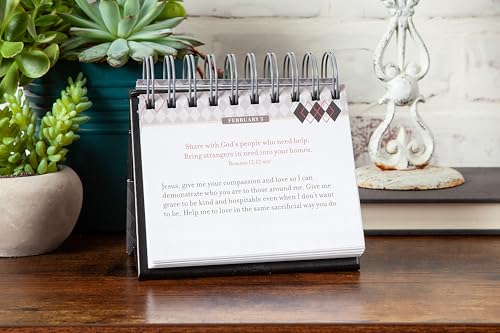 FEBRUARY 3
Share with God's people who need help.
Bring strangers in need into your homes.
ROMANS 12:13
Jesus, give me your compassion and love so I can
demonstrate who you are to those around me. Give me
grace to be kind and hospitable even when I don't want
to be. Help me to love in the same sacrificial way you do